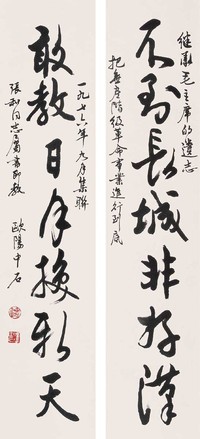 继承毛主席的遗志
把无产阶级革命事业进行到底
不到长城非好汉
敢教日月换新天
一九七六年九月集联
张和同志属书即教
欧阳中石